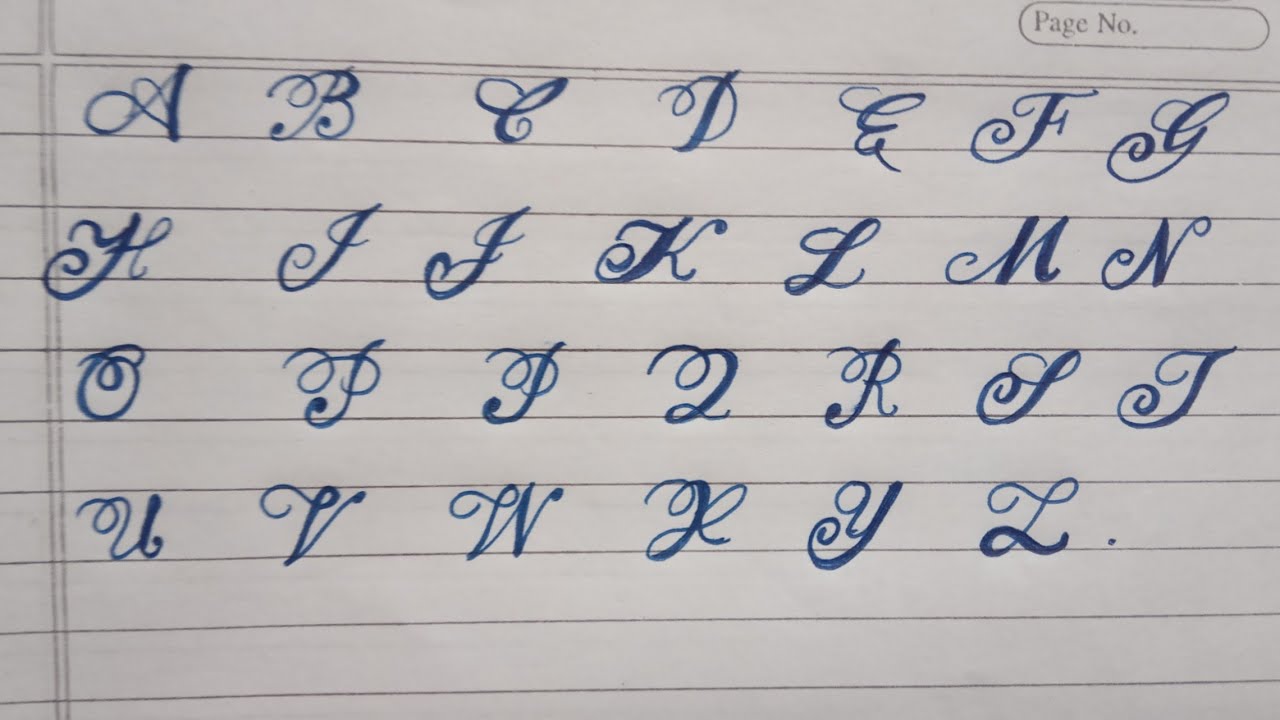 Page No.
A B C D E F G
H I J K L M N
O P P Q R S T
U V W X Y Z .